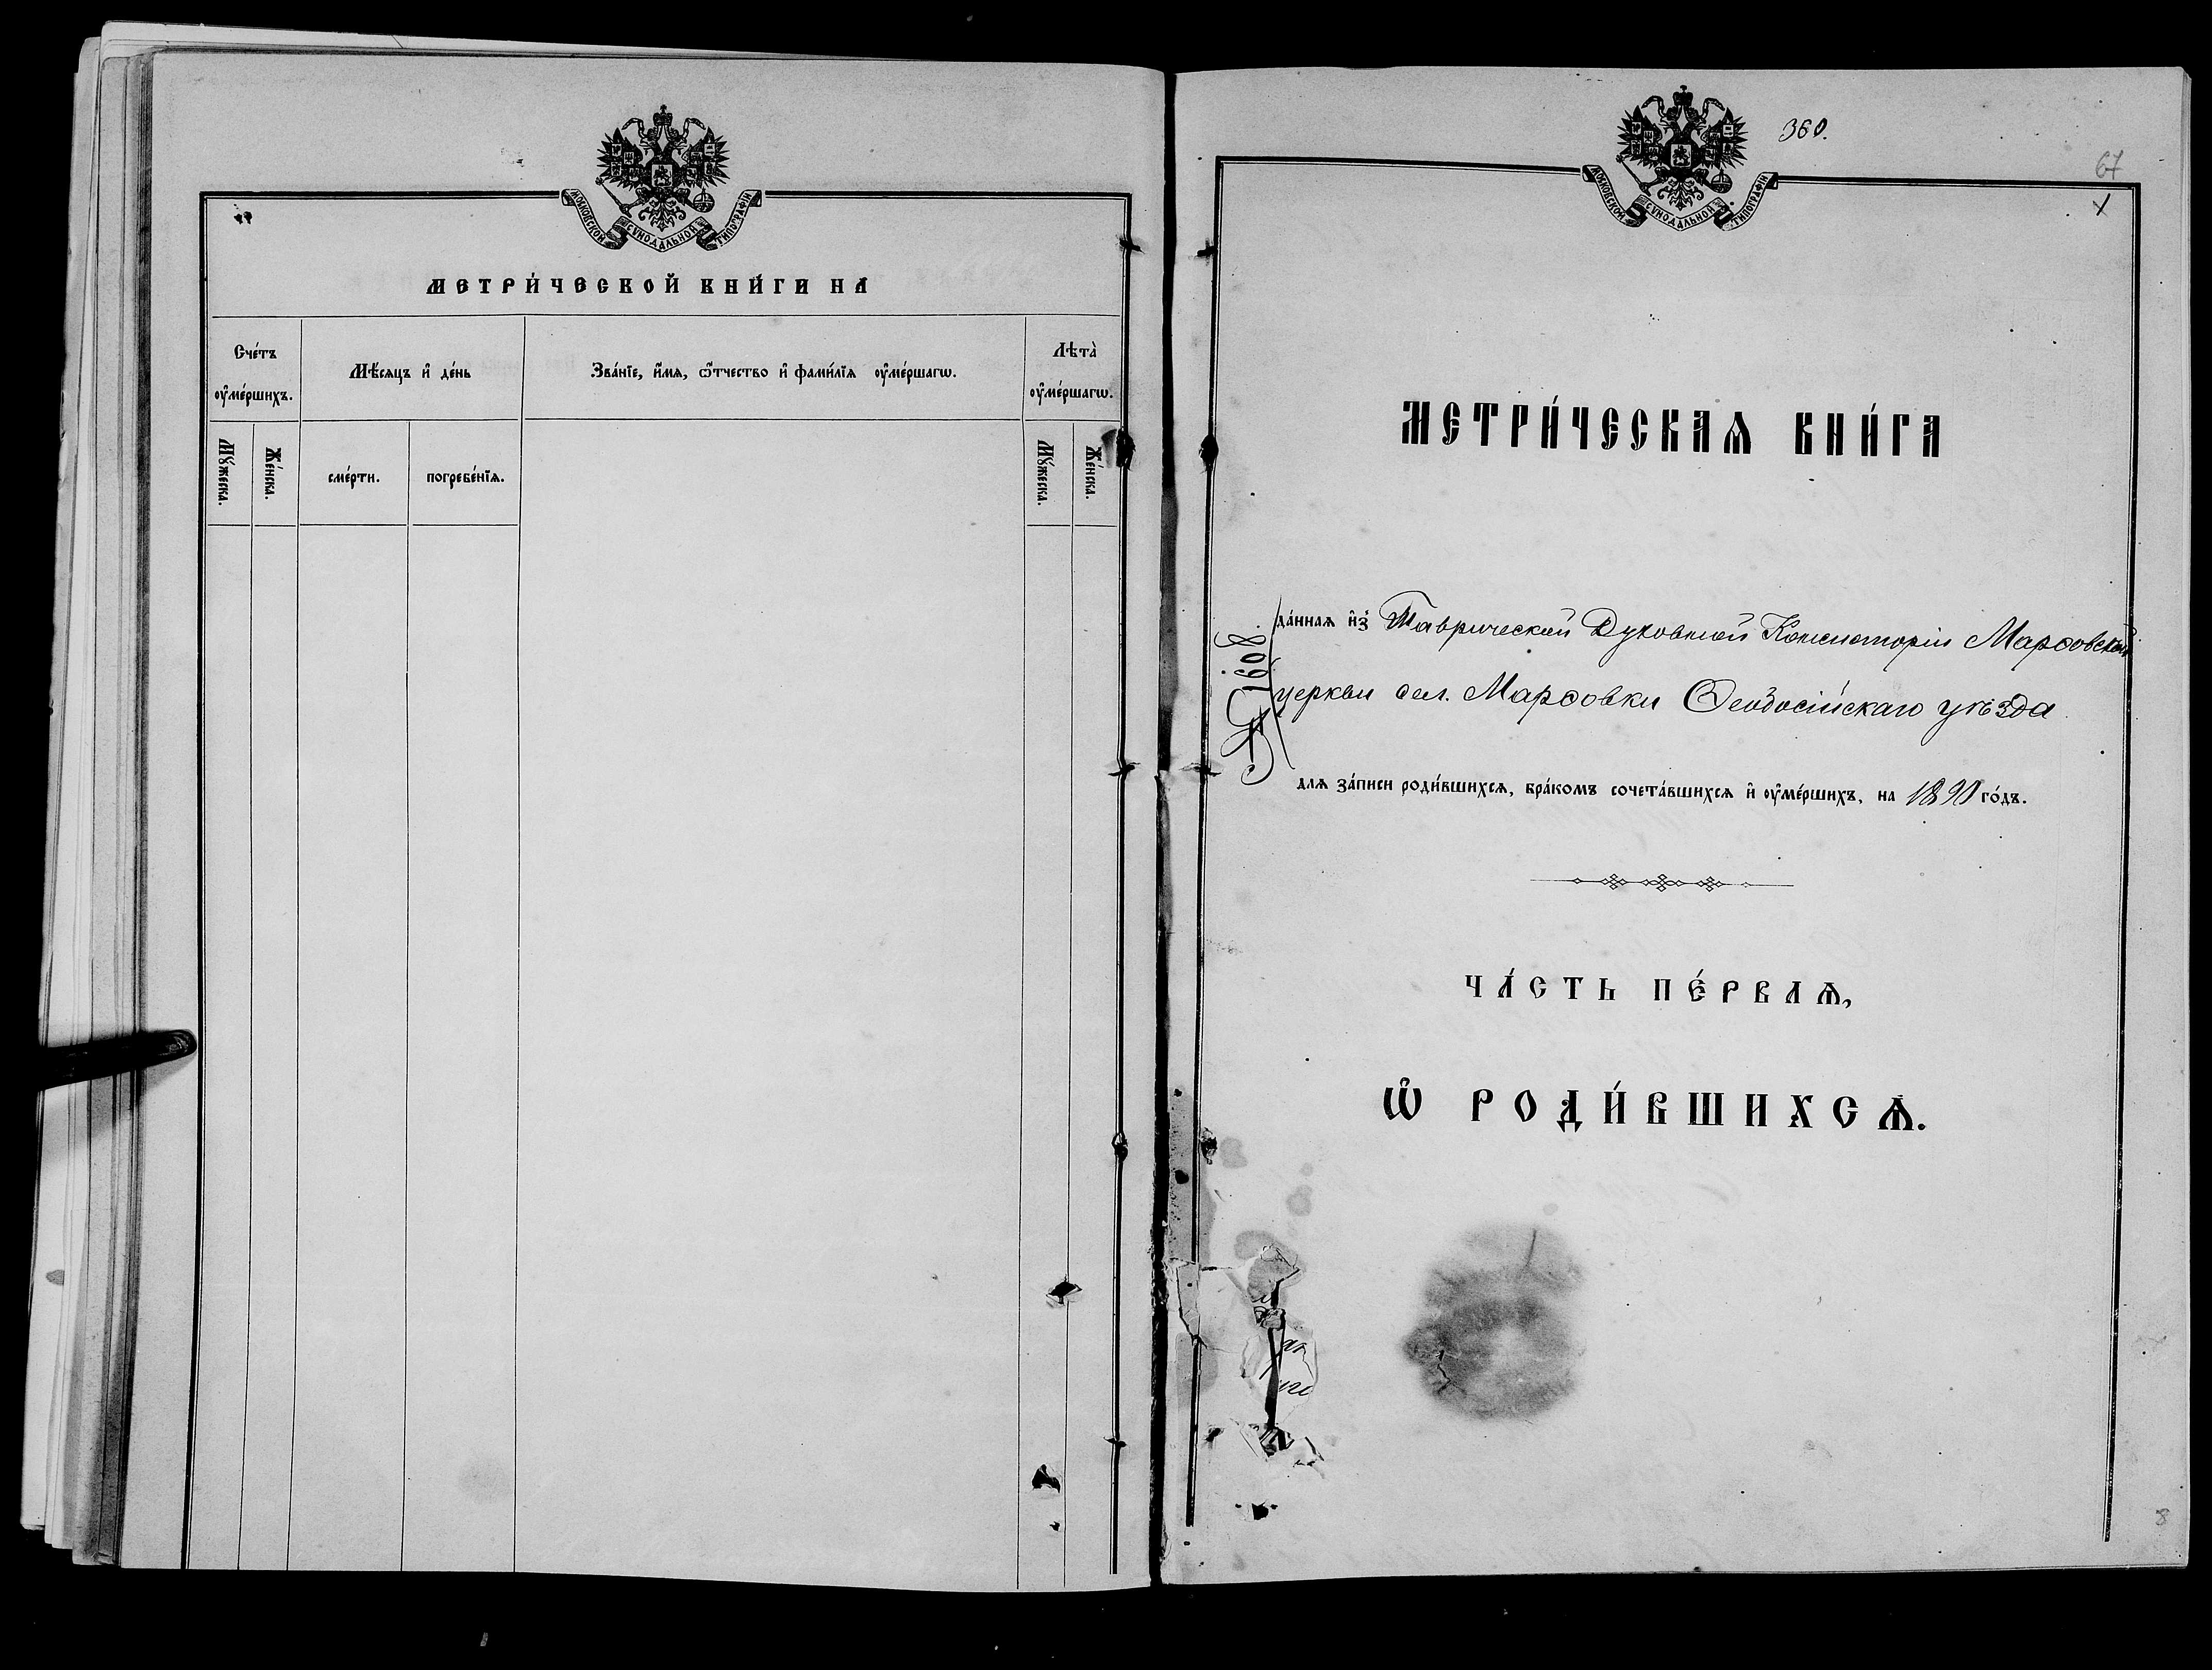 МОСКОВСКОЙ СѴНОДАЛЬНОЙ ТИПОГРАФІИ
МЕТРИ́ЧЕСКОЙ КНИ́ГИ НА
Сче́тъ ᲂу҆ме́ршихъ.
Мѣ́сяцъ и҆ де́нь
Зва́нїе, и҆́мѧ, ѻ҆́тчество и҆ фами́лїѧ ᲂу҆ме́ршагѡ.
Лѣта̀ ᲂу҆ме́ршагѡ.
Мꙋ́жеска.
Же́нска.
сме́рти.
погребе́нїѧ.
Мꙋ́жеска.
Же́нска.
360.
67
МОСКОВСКОЙ СѴНОДАЛЬНОЙ ТИПОГРАФІИ
МЕТРИ́ЧЕСКАѦ КНИ́ГА
№ 1608.
да́ннаѧ и҆з̾ Таврической Духовной Консисторіи Марѳовской
церкви сел. Марѳовки Ѳеодосійскаго уѣзда
длѧ за́писи роди́вшихсѧ, бра́комъ сочета́вшихсѧ и҆ ᲂу҆ме́ршихъ, на 1890 го́дъ.
ЧА́СТЬ ПЕ́РВАѦ,
Ѡ҆ РОДИ́ВШИХСѦ.
8